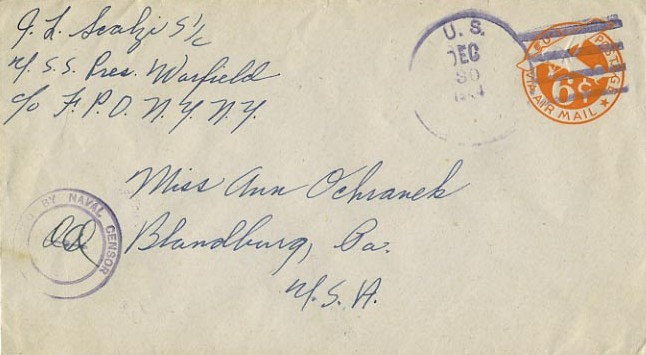 J. L. Scalzi S 1/c
U.S.S. Pres. Warfield
c/o F.P.O. N.Y. N.Y.
U. S.
DEC
30
U.S. POSTAGE
6¢
VIA AIR MAIL
Miss Ann Ochranek
Blandburg, Pa.
U.S.A.
BY NAVAL CENSOR